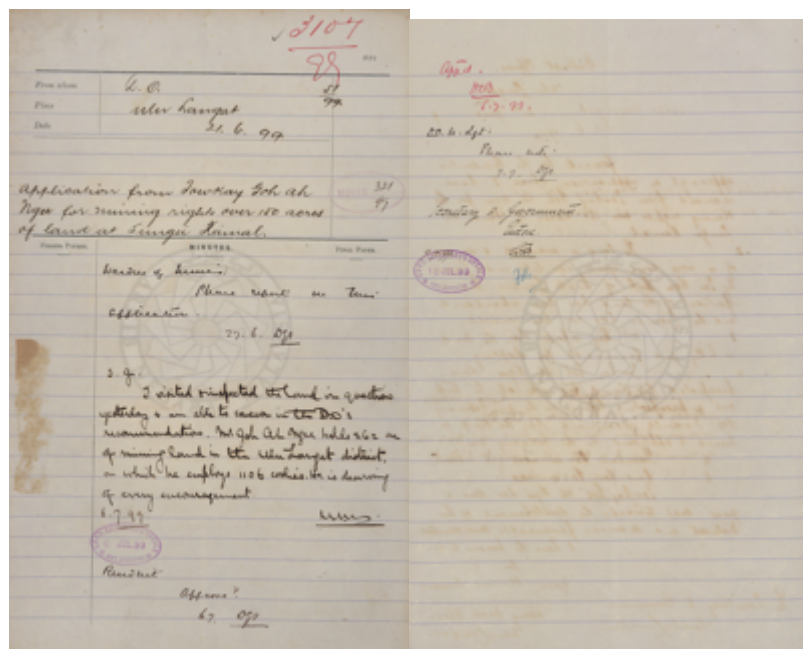 3107
99
From whom
D. O.
Place
Ulu Langat
Date
21. 6. 99
Application from Towkay Goh Ah
Ngee for mining rights over 150 acres
of land at Sungei Ramal.
331
97
MINUTES.
Warden of Mines.
Please report on this
application.
27. 6.
S. G.
I visited & inspected the land in question
yesterday & am able to concur in the D.O's
recommendation. Mr Goh Ah Ngee holds 262 ac
of mining land in the Ulu Langat district,
on which he employs 1106 coolies. He is deserving
of every encouragement
6.7.99
Resident
Approve?
6.7.
Appd.
6.7.99.
D.O. U. Lgt:
Please note.
7.7.
Secretary to Government.